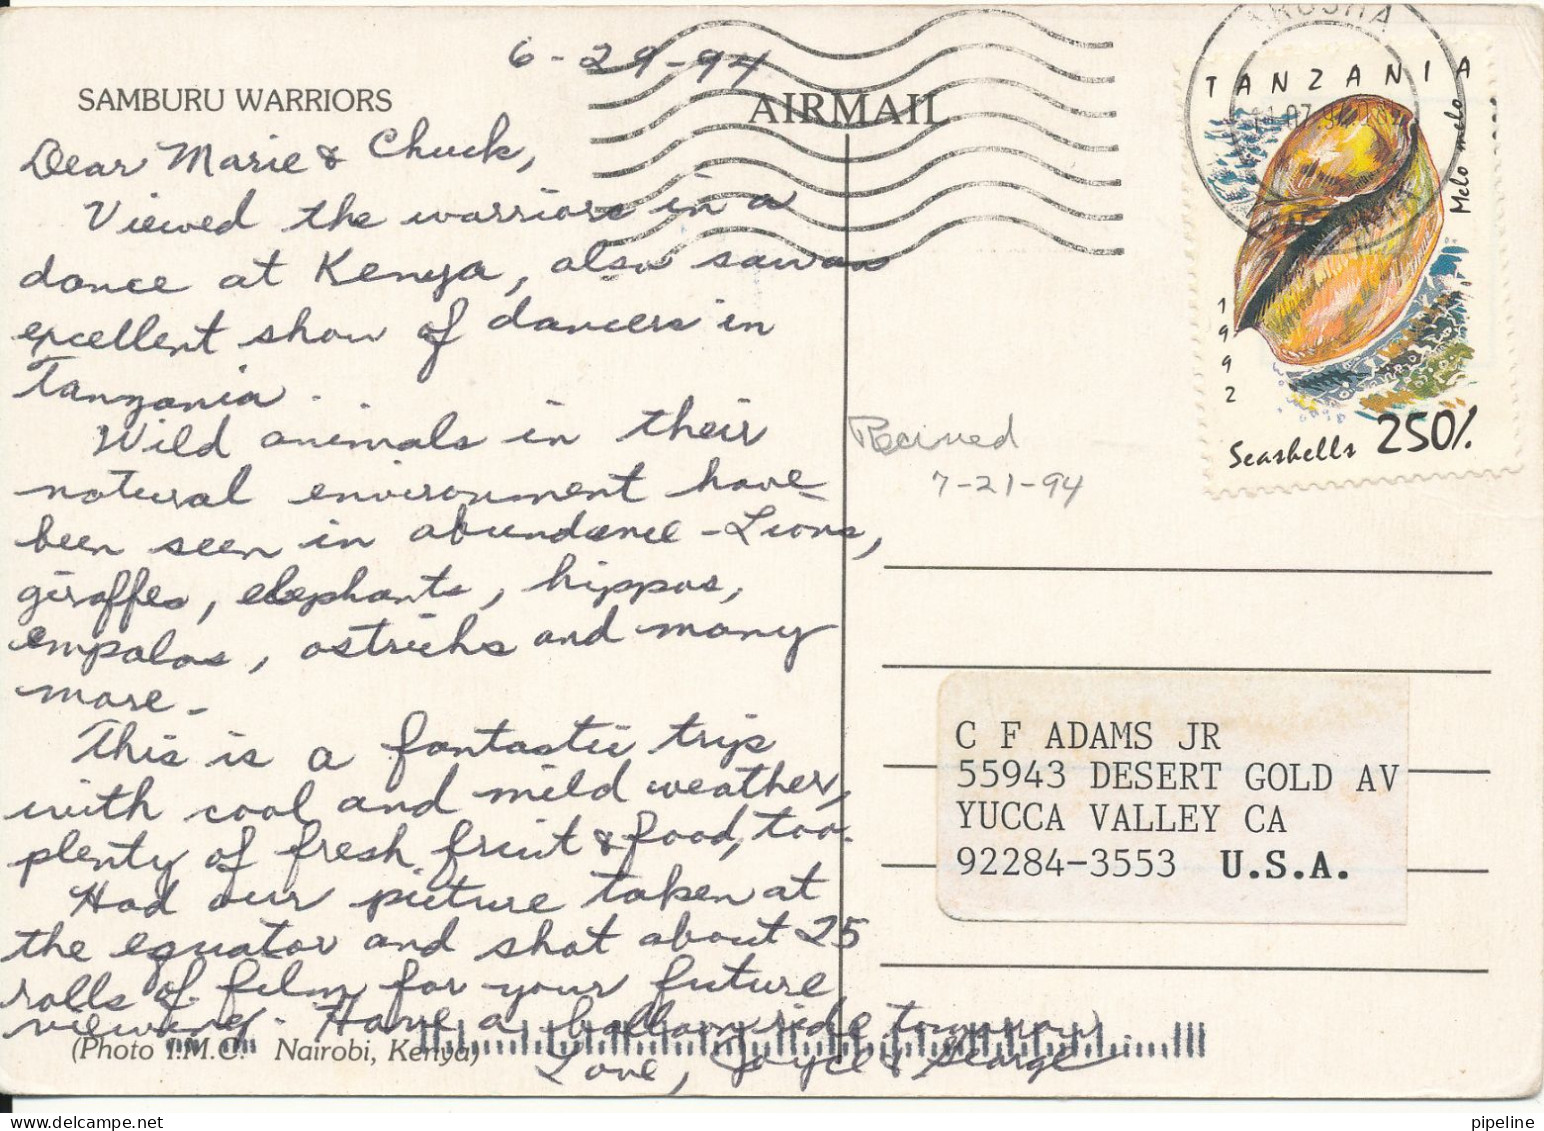 6-29-94
SAMBURU WARRIORS
AIRMAIL
Dear Marie & Chuck,
Viewed the warriors in a
dance at Kenya, also saw an
excellent show of dancers in
Tanzania.
Wild animals in their
natural environment have
been seen in abundance - Lions,
giraffes, elephants, hippos,
empalas, ostrichs and many
more.
This is a fantastic trip
with cool and mild weather,
plenty of fresh fruit & food, too.
Had our picture taken at
the equator and shot about 25
rolls of film for your future
viewing. Have a balloon ride tomorrow.
Love, Joyce & George
(Photo I.M.C. Nairobi, Kenya)
ARUSHA
TANZANIA
Melo melo
1992
Seashells 250/.
Received
7-21-94
C F ADAMS JR
55943 DESERT GOLD AV
YUCCA VALLEY CA
92284-3553 U.S.A.
pipeline